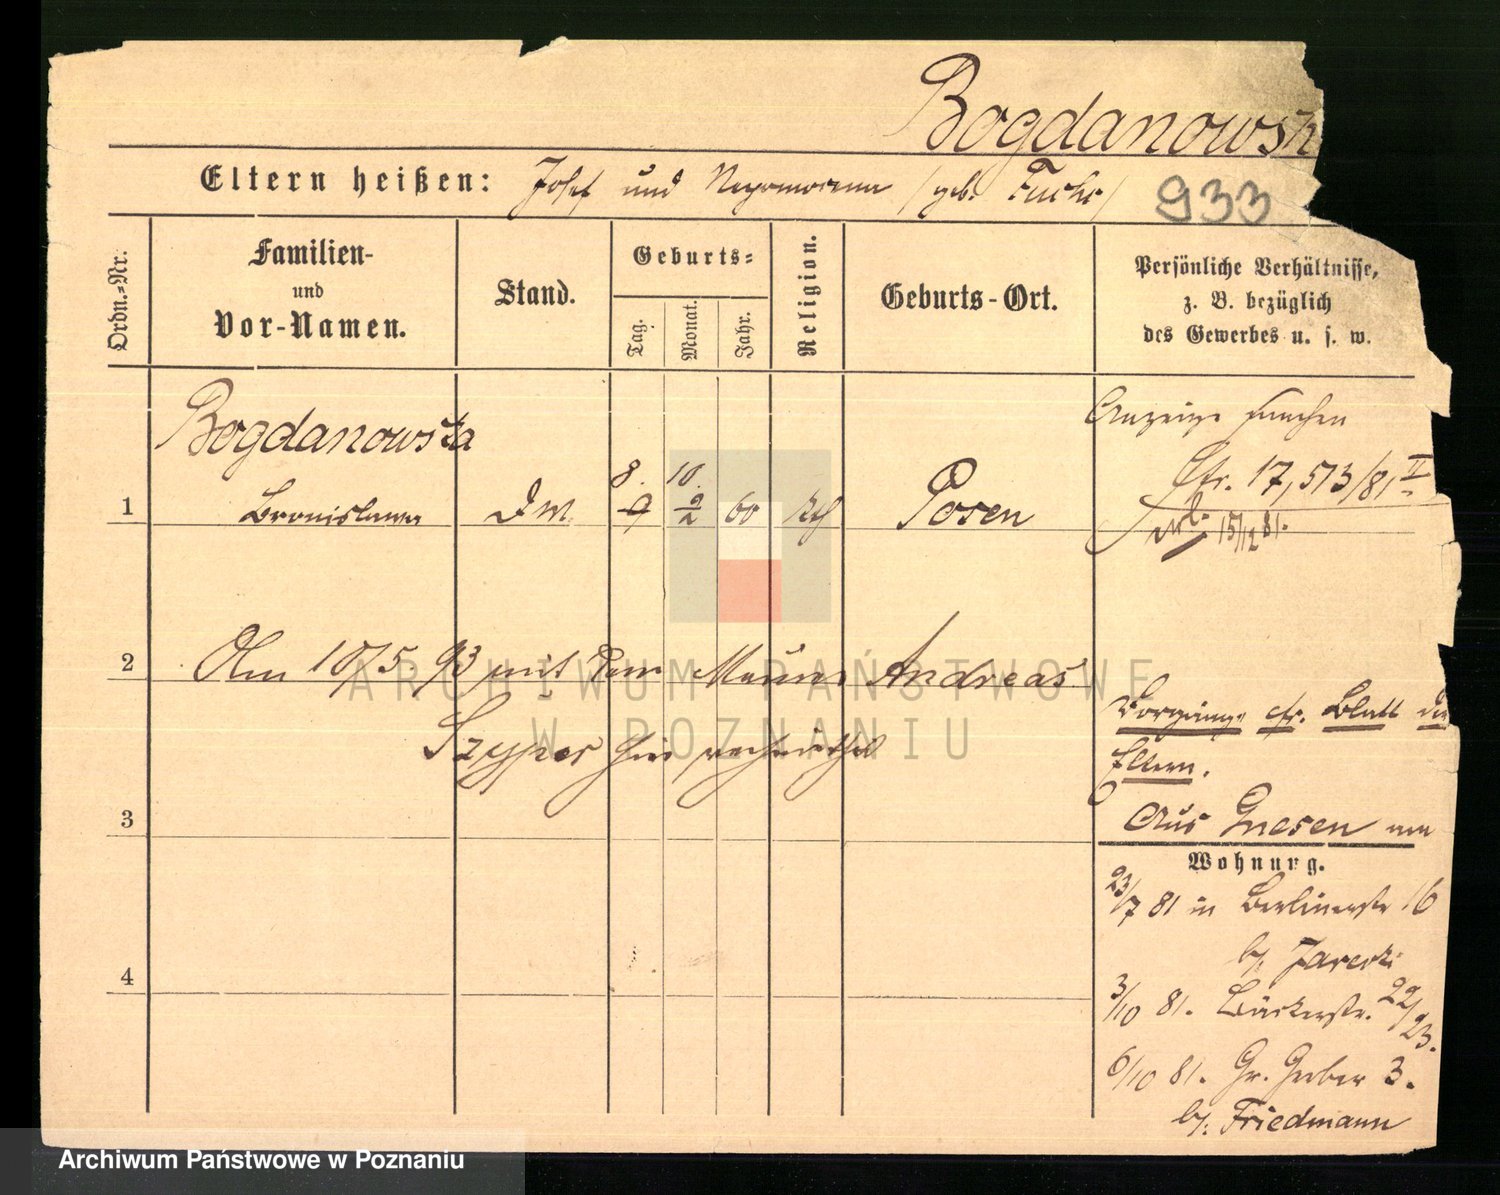 Bogdanowsk
Eltern heißen: Josef und Nepomucena (geb. Fuchs)
933
Ordn.-Nr.
Familien-
und
Vor-Namen.
Stand.
Geburts-
Tag.
Monat.
Jahr.
Religion.
Geburts-Ort.
Persönliche Verhältnisse,
z. B. bezüglich
des Gewerbes u. s. w.
Bogdanowska
8. 10.
1 Bronislawa D.M. 9 9/2 60 kth Posen
Anzeige
cfr. 17,513/81 II
15/12 81.
2 Am 10/5 93 mit dem Maurer Andreas
Szyper hier verheirathet
Vorgänge cfr. Blatt der
Eltern.
3
Aus Gnesen am
Wohnung.
23/7 81 in Berlinerstr 16
b/. Jarecki
4
3/10 81. Bäckerstr. 22/23.
6/10 81. Gr. Gerber 3.
b/. Friedmann
ARCHIWUM PAŃSTWOWE
W POZNANIU
Archiwum Państwowe w Poznaniu